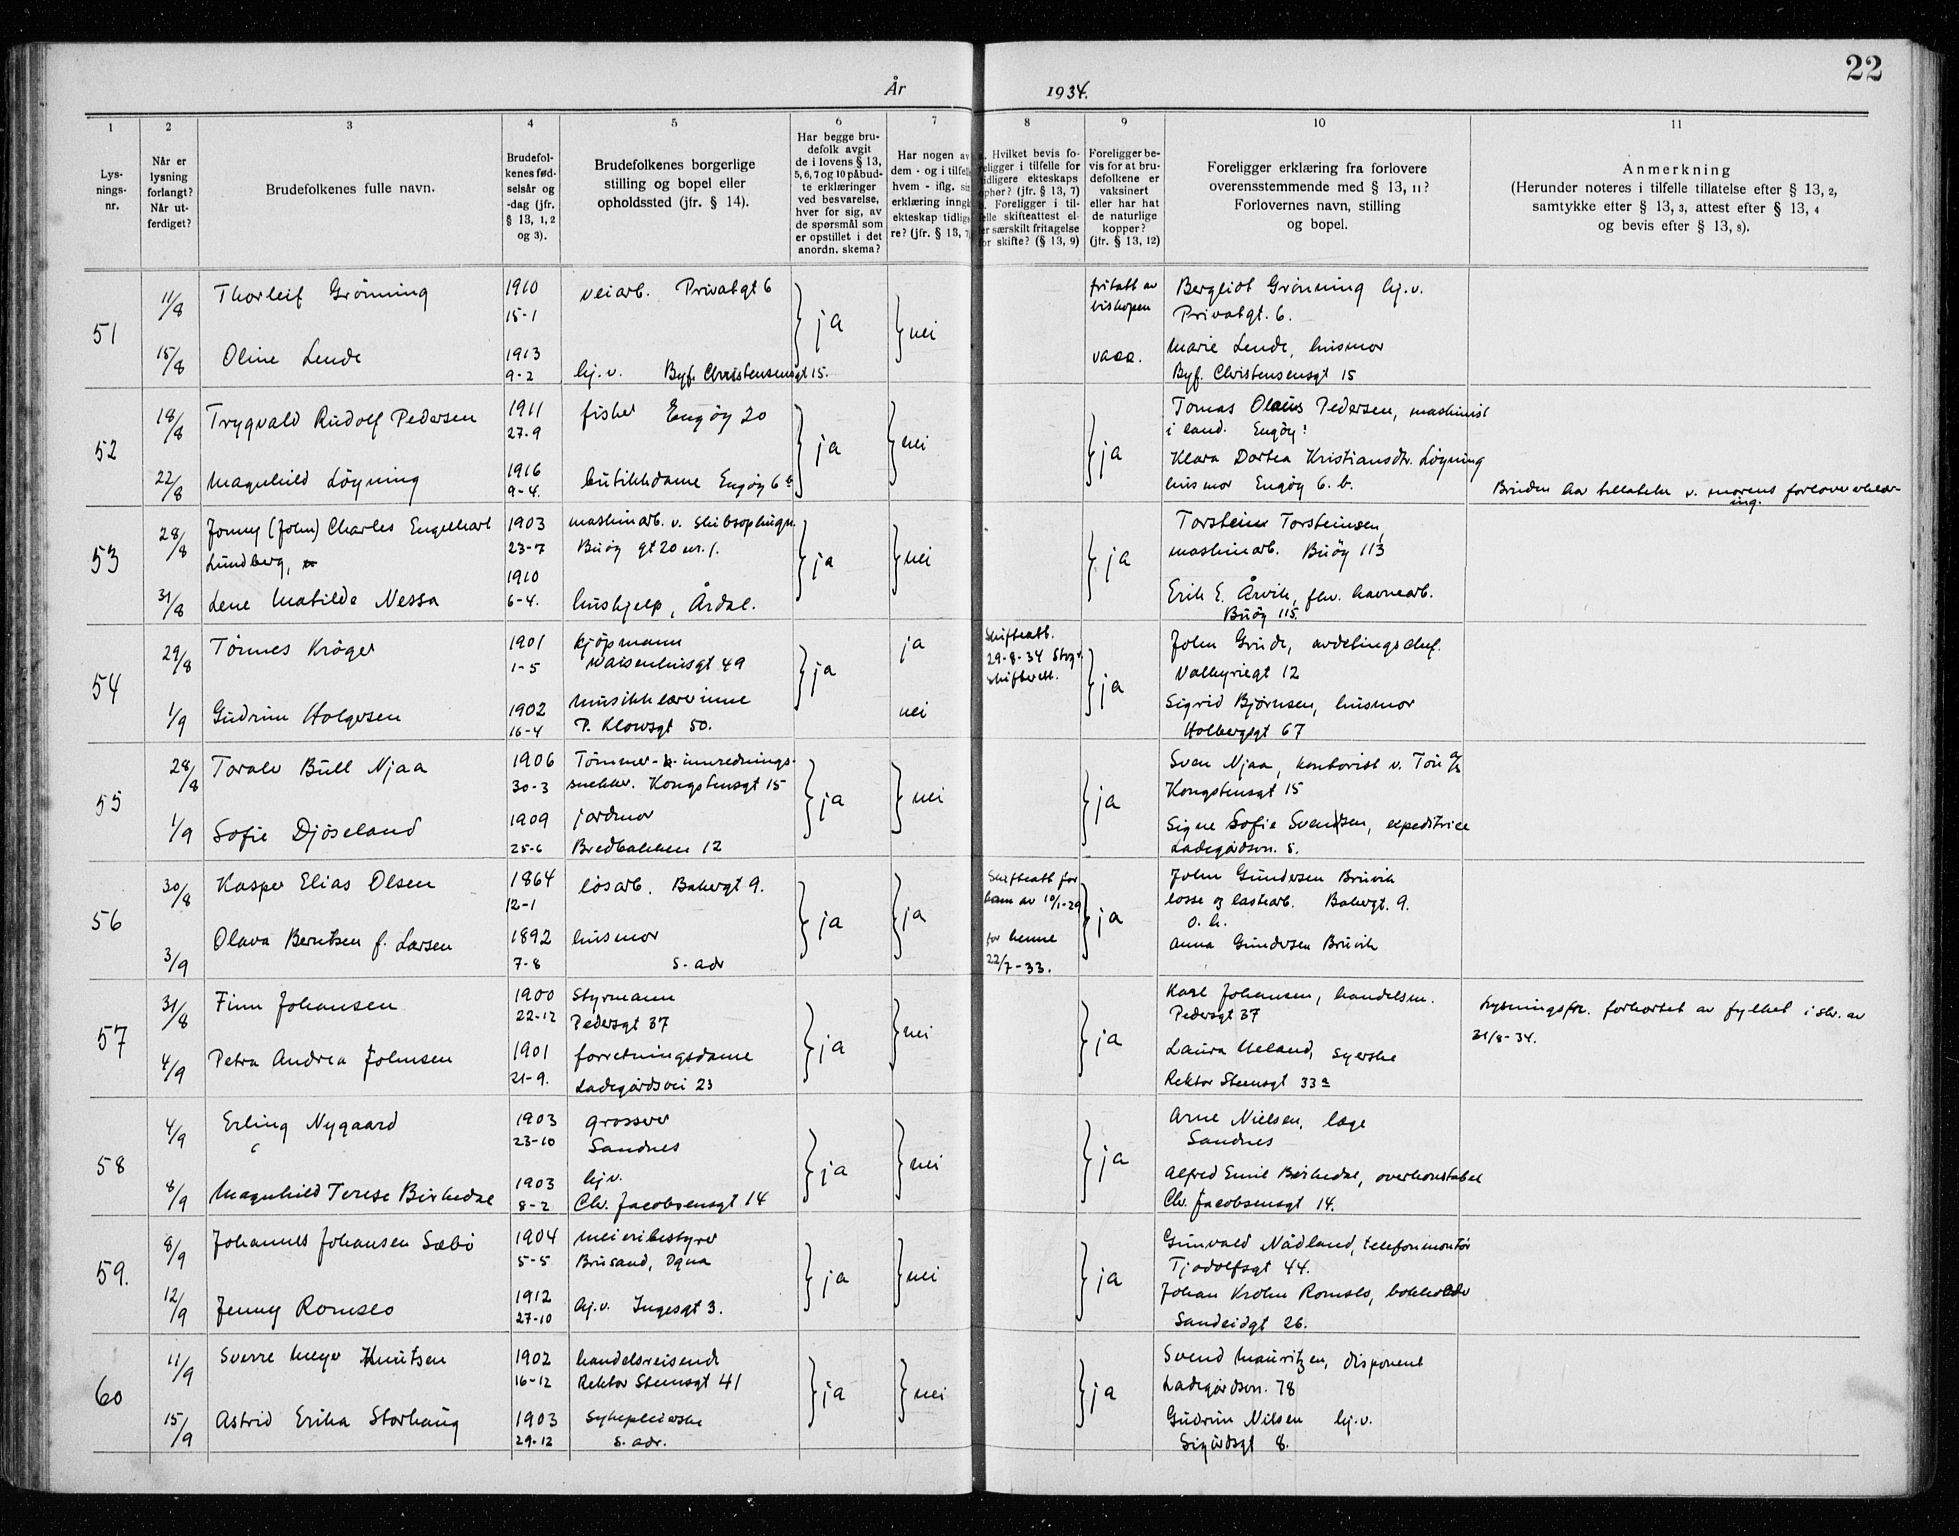 22
År 1934.
1 2 3 4 5 6 7 8 9 10 11
Lysnings-nr.
Når er lysning forlangt? Når utferdiget?
Brudefolkenes fulle navn.
Brudefolkenes fødselsår og -dag (jfr. § 13, 1, 2 og 3).
Brudefolkenes borgerlige stilling og bopel eller opholdssted (jfr. § 14).
Har begge brudefolk avgit de i lovens § 13, 5, 6, 7 og 10 påbudte erklæringer ved besvarelse, hver for sig, av de spørsmål som er opstillet i det anordn. skema?
Har nogen av dem - og i tilfelle hvem - iflg. erklæring inngått ekteskap tidligere? (jfr. § 13, 7)
Hvilket bevis foreligger i tilfelle for tidligere ekteskaps ophør? (jfr. § 13, 7) Foreligger i tilfelle skifteattest eller særskilt fritagelse for skifte? (§ 13, 9)
Foreligger bevis for at brudefolkene er vaksinert eller har hat de naturlige kopper? (jfr. § 13, 12)
Foreligger erklæring fra forlovere overensstemmende med § 13, 11? Forlovernes navn, stilling og bopel.
Anmerkning (Herunder noteres i tilfelle tillatelse efter § 13, 2, samtykke efter § 13, 3, attest efter § 13, 4 og bevis efter § 13, 8).
51
11/8 Thorleif Grønning 1910 15-1 veiarb. Privatgt 6 ja nei fritatt av biskopen Bergliot Grønning hj.v. Privatgt. 6.
15/8 Oline Lende 1913 9-2 hj.v. Byf. Christensensgt 15. vacc. Marie Lende, husmor Byf. Christensensgt 15
52
18/8 Trygvald Rudolf Pedersen 1911 27-9 fisker Engøy 20 ja nei ja Tomas Olaus Pedersen, maskinist i land. Engøy
22/8 Magnhild Løyning 1916 9-4. butikkdame Engøy 6b Klara Dortea Kristiansdtr. Løyning husmor Engøy 6.b. Bruden har tillatelse v. morens forlovererklæring.
53
28/8 Jonny (John) Charles Engelhart Lundberg, 1903 23-7 maskinarb. v. Skibsophugn. Buøy gt 20 nr. 1. ja nei ja Torstein Torsteinsen, maskinarb. Buøy 113
31/8 Lene Matilde Nessa 1910 6-4. hushjelp, Årdal. Erik E. Årvik, fhv. havnearb. Buøy 115.
54
29/8 Tønnes Krøger 1901 1-5 kjøpmann Waisenhusgt 49 ja ja Skifteatt. 29-8-34 Stvg. skifterett. ja John Grude, avdelingschef. Valkyriegt 12
1/9 Gudrun Holgersen 1902 16-4 musikklærerinne P. Klowsgt 50. nei Sigrid Bjørnsen, husmor Holbergsgt 67
55
28/8 Toralv Bull Njaa 1906 30-3 Tømmer- innrednings-snekker. Kongstensgt 15 ja nei ja Sven Njaa, kontorist v. Tou A/S Kongstensgt 15
1/9 Sofie Djøseland 1909 25-6 jordmor Bredbakken 12 Signe Sofie Svendsen, expeditrice Ladegårdsv. 5.
56
30/8 Kasper Elias Olsen 1864 12-1 løsarb. Bakergt 9. ja ja Skifteatt for ham av 10/1-29 ja John Gundersen Bruvik losse og lastearb. Bakergt. 9.
o. h.
3/9 Olava Berntsen f. Larsen 1892 7-8 husmor s. adr for henne 22/7-33. Anna Gundersen Bruvik
57
31/8 Finn Johansen 1900 22-12 Styrmann Pedersgt 37 ja nei ja Karl Johansen, handelsm. Pedersgt 37 Lysningsfr. forkortet av fylket i skr. av 31/8-34.
4/9 Petra Andrea Johnsen 1901 21-9. forretningsdame Ladegårdsvei 23 Laura Ueland, syerske Rektor Steensgt 33a
58
4/9 Erling Nygaard 1903 23-10 grosser Sandnes ja nei ja Arne Nielsen, læge Sandnes
8/9 Magnhild Terese Birkedal 1903 8-2 hj.v. Chr. Jacobsensgt 14 Alfred Emil Birkedal, overkonstabel Chr. Jacobsensgt 14.
59.
8/9 Johannes Johansen Sæbø 1904 5-5 meieribestyrer Brusand, Ogna ja nei ja Gunvald Nådland, telefonmontør Tjodolfsgt 44.
12/9 Jenny Romslo 1912 27-10 hj.v. Ingesgt 3. Johan Krohn Romslo, bokholder Sandeidgt 26.
60
11/9 Sverre Meyer Knutsen 1902 16-12 handelsreisende Rektor Steensgt 41 ja nei ja Svend Mauritzen, disponent Ladegårdsv. 78
15/9 Astrid Erika Storhaug 1903 29-12 sykepleierske s. adr. Gudrun Nilsen hj.v. Sigurdsgt 8.